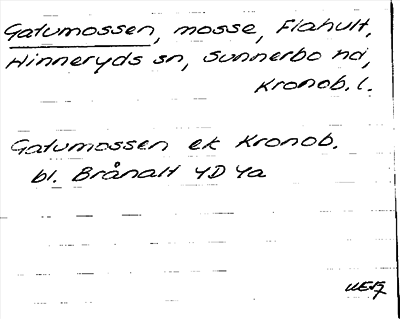 Gatumossen, mosse, Flahult,
Hinneryds sn, Sunnerbo hd,
Kronob. l.
Gatumossen ek Kronob.
bl. Brånalt 4D 4a